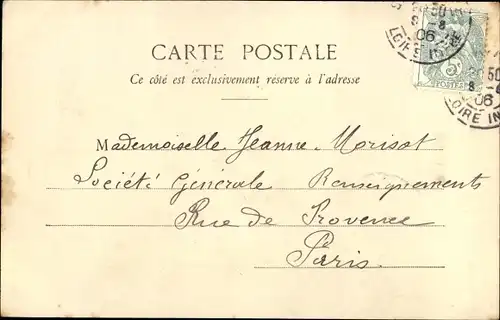 CARTE POSTALE
Ce côté est exclusivement réservé à l'adresse
Mademoiselle Jeanne Morisot
Société Générale Renseignements
Rue de Provence
Paris
POSTES
8-8
06
LOIRE IN